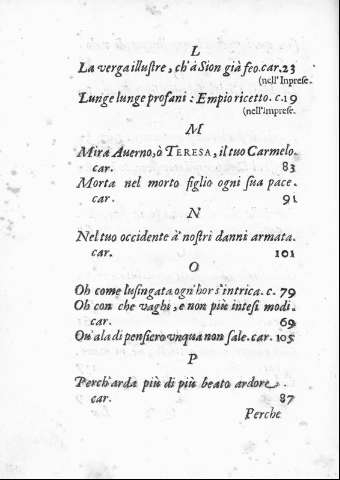 L
La verga illuſtre, ch'à Sion già feo.car.23
(nell'Inpreſe.
Lunge lunge profani : Empio ricetto. c.19
(nell'impreſe.
M
Mira Auerno,ò TERESA, il tuo Carmelo.
car. 83
Morta nel morto figlio ogni ſua pace.
car. 91
N
Nel tuo occidente à noſtri danni armata.
car. 101
O
Oh come luſingata ogni hor s'intrica. c. 79
Oh con che vaghi, e non più inteſi modi.
car. 69
Ou'ala di penſiero vnqua non ſale.car. 105
P
Perch'arda più di più beato ardore.
car. 87
Perche